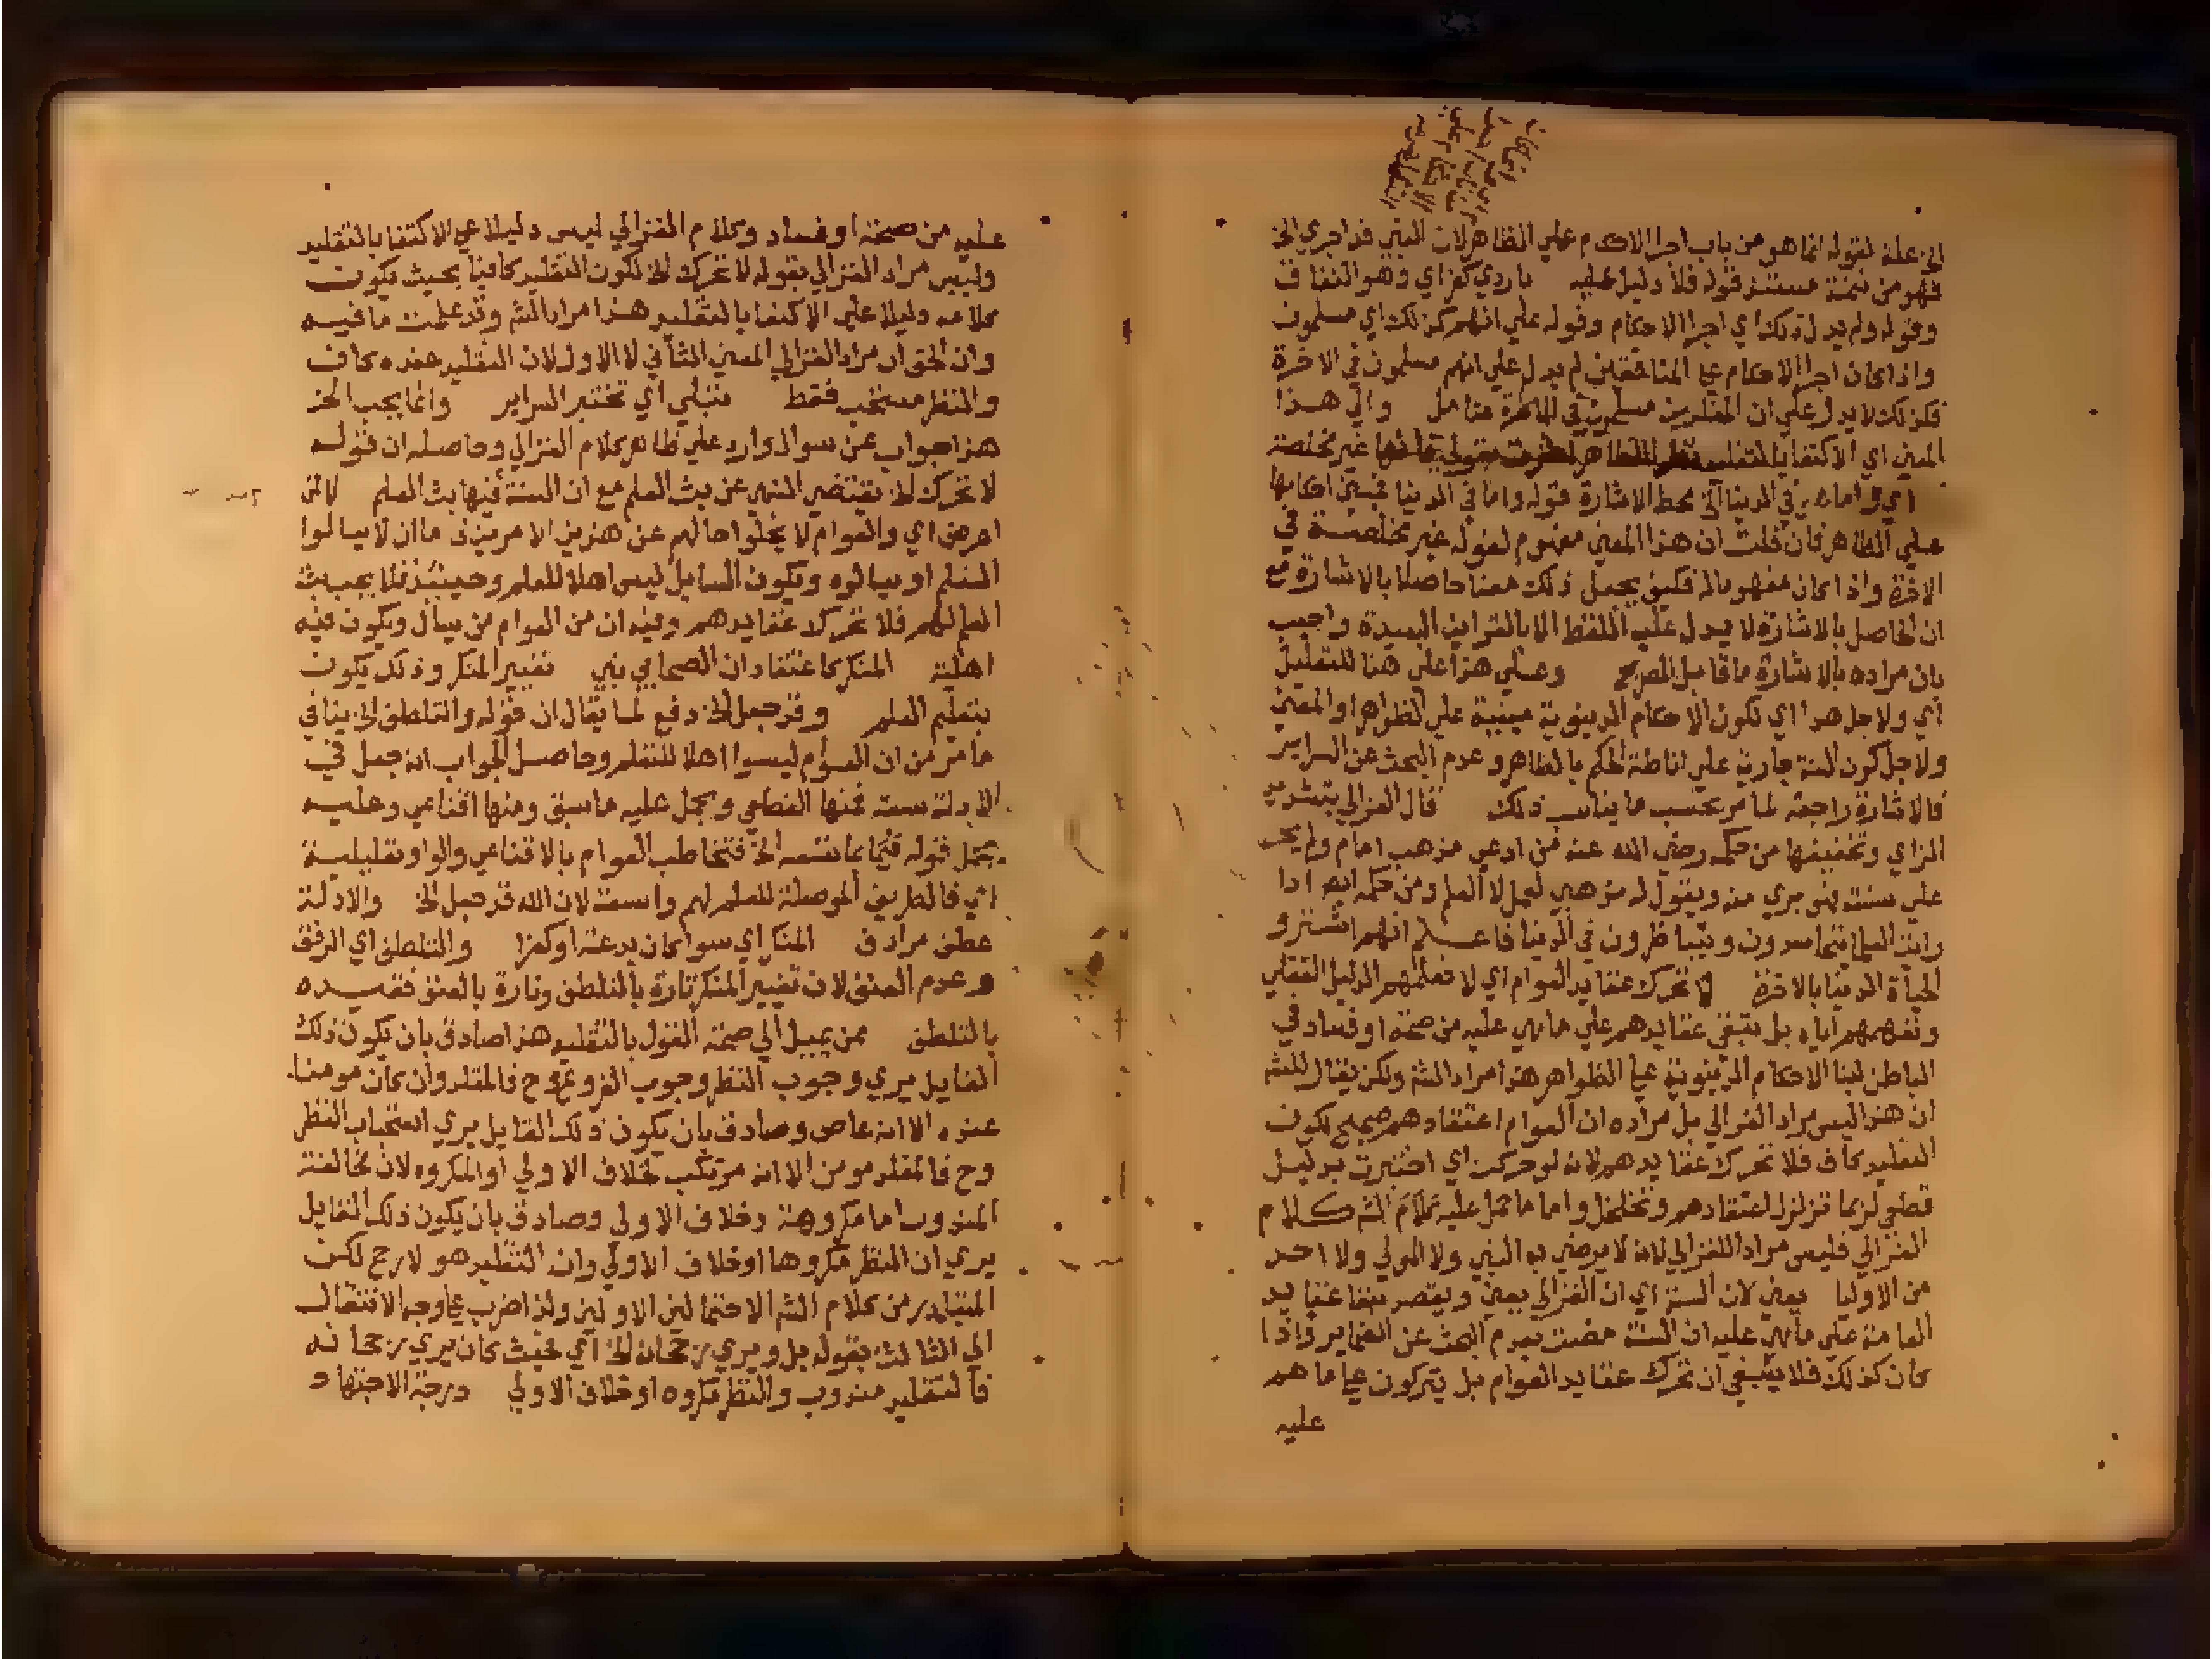 الخ علة لقوله انما هو من باب اجرا الاحكام علي الظاهر لان النبي قد اجري الخ
فهو من تتمة مستند قوله فلا دليل عليه باردي كفر اي وهو النفاق
وقوله ولم يدل ذلك اي اجرا الاحكام وقوله علي انهم كذلك اي مسلمون
واذا كان اجرا الاحكام علي المنافقين لم يدل علي انهم مسلمون في الاخرة
فكذلك لا يدل علي ان المقلدين مسلمون في الاخرة تامل والي هذا
المعني اي الاكتفا بالتقليد غير مخلصة
اي واما في الدنيا الخ محط الاشارة قوله واما في الدنيا فتبني احكامها
علي الظاهر فان قلت ان هذا المعني مفهوم لقوله غير مخلصة في
الاخرة واذا كان مفهوما له فكيف يجعل ذلك معنا حاصلا بالاشارة مع
ان الحاصل بالاشارة لا يدل عليه اللفظ الا بالقراين البعيدة واجيب
بان مراده بالاشارة ما قابل الصريح وعلي هذا علي هنا للتعليل
اي ولاجل هذا اي لكون الاحكام الدنيوية مبنية علي الظواهر او المعني
ولاجل كون السنة جارية علي اناطة الحكم بالظاهر وعدم البحث عن السراير
فالاشارة راجعة لما مر بحسب ما يناسب ذلك قال الغزالي بتشديد
الزاي وتخفيفها من حكمه رضي الله عنه من ادعي مذهب امام ولم يكن
علي سنته فهو بري منه ويقول له مذهبي العمل لا العلم ومن حكمه ايضا اذا
رايت العلما يتحاسدون ويتباظرون في الدنيا فاعلم انهم اشتروا
الحياة الدنيا بالاخرة لا تحرك عقايد العوام اي لا تعلمهم الدليل العقلي
وتفهمهم اياه بل تبقي عقايدهم علي ما هي عليه من صحة او فساد في
الباطن لبنا الاحكام الدنيوية علي الظواهر هذا مراد الشم ولكن يقال للشم
ان هذا ليس مراد الغزالي بل مراده ان العوام اعتقادهم صحيح لكون
التقليد كاف فلا تحرك عقايدهم لانه لو حركت اي اختبرت بدليل
قطعي لربما تزلزل اعتقادهم وتخلخل واما ما حمل عليه كلام الشم كلام
الغزالي فليس مراد اللغزالي لانه لا يرضي به النبي ولا المولي ولا احد
من الاوليا يعني لان السنة اي ان الغزالي يعني ويقصد ببقا عقايد
العامة علي ما هي عليه ان السنة مضت بعدم البحث عن الضماير فاذا
كان كذلك فلا ينبغي ان تحرك عقايد العوام بل يتركون علي ما هم
عليه
عليه من صحة او فساد وكلام الغزالي ليس دليلا علي الاكتفا بالتقليد
وليس مراد الغزالي بقوله لا تحرك الخ لكون التقليد كافيا بحيث يكون
كلامه دليلا علي الاكتفا بالتقليد هذا مراد الشم وقد علمت ما فيه
وان الحق ان مراد الغزالي المعني الثاني لا الاول لان التقليد عنده كاف
والنظر مستحب فقط تبلي اي تختبر السراير وانما يجب الخ
هذا جواب عن سوال وارد علي ظاهر كلام الغزالي وحاصله ان قوله
لا تحرك الخ يقتضي النهي عن بث العلم مع ان السنة فيها بث العلم لاحد
امرين اي والعوام لا يخلوا حالهم عن هذين الامرين فاما ان لا يسالوا
العلم او يسالوه ويكون السايل ليس اهلا للعلم وحينئذ فلا يجب بث
العلم لهم فلا تحرك عقايدهم وفيه ان من العوام من يسال ويكون فيه
اهلية المنكر كاعتقاد ان الصحابي نبي تغيير المنكر وذلك يكون
بتعليم العلم وقد جعل الخ دفع لما يقال ان قوله والتلطف الخ ينافي
ما مر من ان العوام ليسوا اهلا للتعلم وحاصل الجواب انه جعل في
الادلة سعة فمنها القطعي ويحمل عليه ما سبق ومنها اقناعي وعليه
يحمل قوله فيما تسعه الخ فتخاطب العوام بالاقناعي والواو تعليلية
اي فالطريق الموصلة للعلم لهم واسعة لان الله قد جعل الخ والادلة
عطف مرادف المنكر اي سوا كان بدعة او كفرا والتلطف اي الرفق
وعدم العنف لان تغيير المنكر تارة بالتلطف وتارة بالعنف فقيده
بالتلطف ممن يميل الي صحة القول بالتقليد هذا صادق بان يكون ذلك
القايل يري وجوب النظر وجوب الفروع وح فالمقلد وان كان مومنا
عنده الا انه عاص وصادق بان يكون ذلك القايل يري استحباب النظر
وح فالمقلد مومن الا انه مرتكب لخلاف الاولي او المكروه لان مخالفة
المندوب اما مكروهة وخلاف الاولي وصادق بان يكون ذلك القايل
يري ان النظر مكروها او خلاف الاولي وان التقليد هو الارجح لكن
المتبادر من كلام الشم الاحتمالين الاولين ولذا اضرب علي وجه الانتقال
الي الثالث بقوله بل ويري رجحانه الخ اي بحيث كان يري رجحانه
فالتقليد مندوب والنظر مكروه او خلاف الاولي درجة الاجتهاد